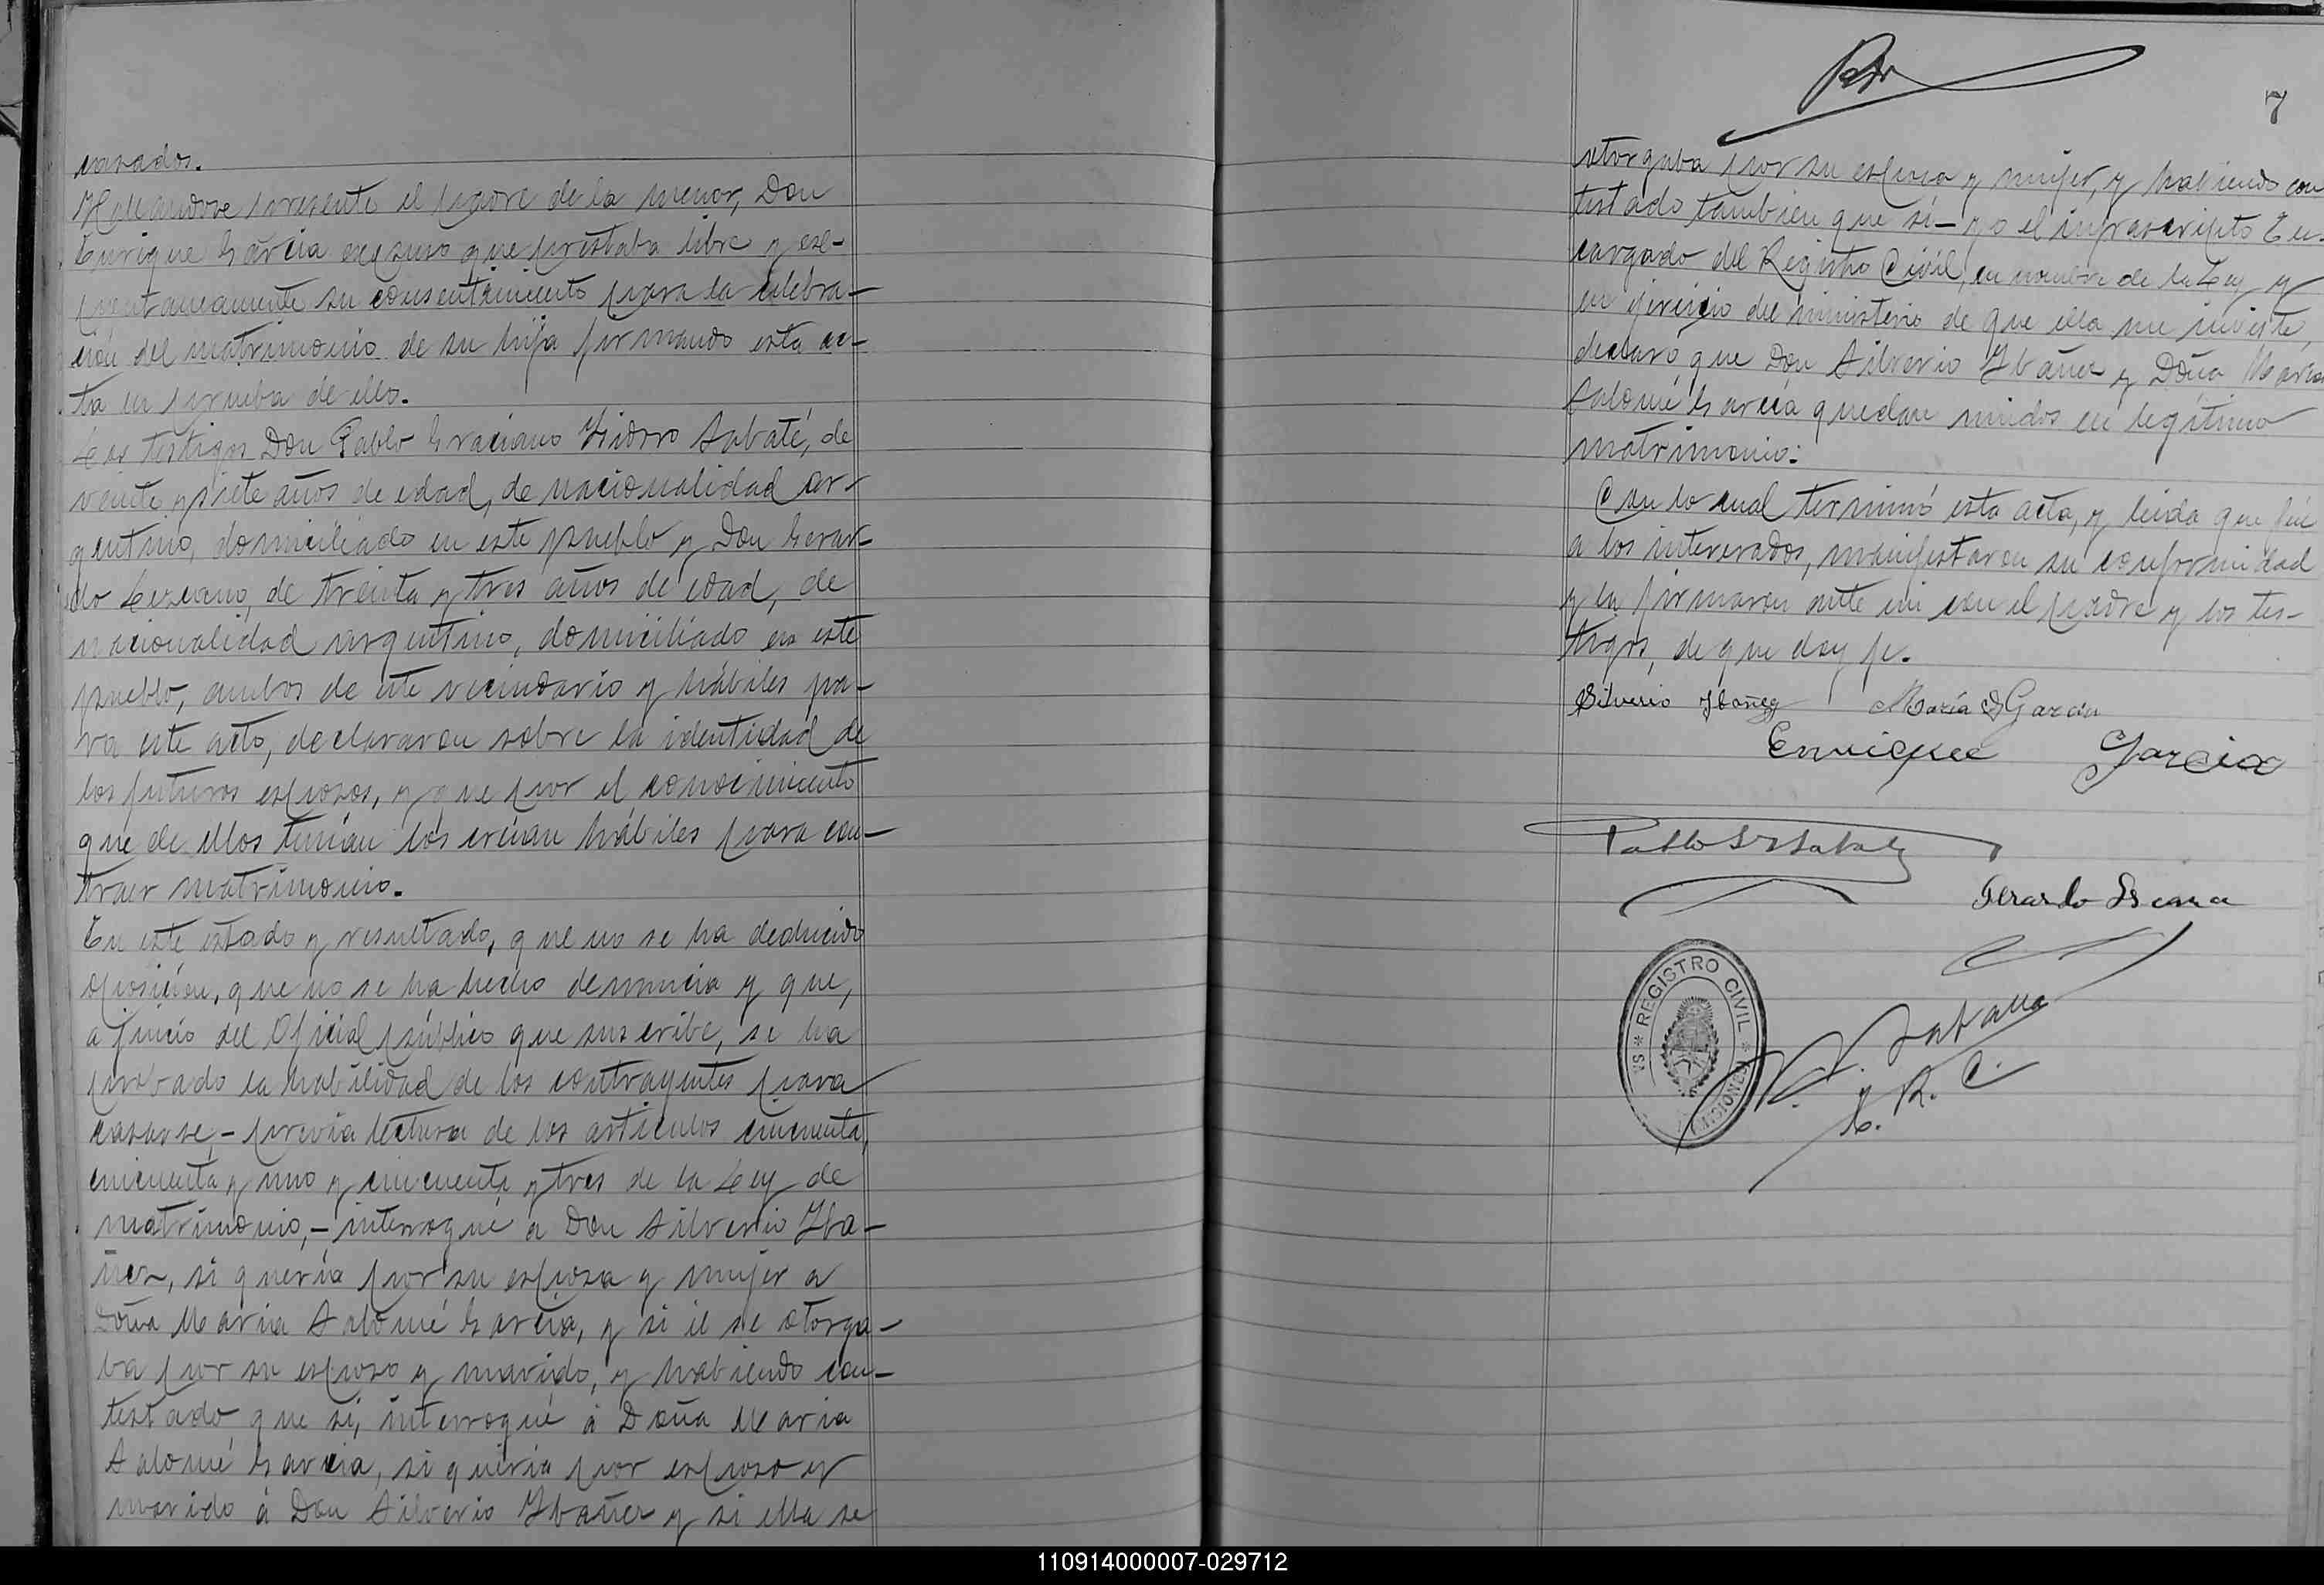 casados.
Hallandose presente el padre de la menor, Don
Enrique García expuso que prestaba libre y es-
pontaneamente su consentimiento para la celebra-
ción del matrimonio de su hija firmando esta ac-
ta en prueba de ello.
Los testigos Don Pablo Graciano Ysidoro Sabaté, de
veinte y siete años de edad, de nacionalidad ar-
gentino, domiciliado en este pueblo y Don Gerar-
do Lezcano, de treinta y tres años de edad, de
nacionalidad argentino, domiciliado en este
pueblo, ambos de este vecindario y hábiles pa-
ra este acto, declararon sobre la identidad de
los futuros esposos, y que por el conocimiento
que de ellos tenían los creían hábiles para con-
traer matrimonio.
En este estado y resultado, que no se ha deducido
oposición, que no se ha hecho denuncia y que,
a juicio del Oficial público que suscribe, se ha
probado la habilidad de los contrayentes para
casarse,- previa lectura de los artículos cincuenta,
cincuenta y uno y cincuenta y tres de la Ley de
matrimonio,- interrogué a Don Silverio Yba-
ñez, si quería por su esposa y mujer a
Doña Maria Salomé García, y si él se otorga-
ba por su esposo y marido, y habiendo con-
testado que sí, interrogué á Doña Maria
Salomé García, si quería por esposo y
marido á Don Silverio Ybañez y si ella se
7
otorgaba por su esposa y mujer, y habiendo con
testado tambien que sí- yo el infrascripto En-
cargado del Registro Civil, en nombre de la Ley y
en ejercicio del ministerio de que ella me inviste,
declaro que Don Silverio Ybañez y Doña Maria
Salomé García quedan unidos en legítimo
matrimonio:
Con lo cual terminó esta acta, y leida que fué
a los interesados, manifestaron su conformidad
y la firmaron ante mi con el padre y los tes-
tigos, de que doy fe.
Silverio Ybañez María S Garcia
Enrique Garcia
Pablo Sabaté
Gerardo Lescano
REGISTRO CIVIL
Zaballa
E. R. C.
110914000007-029712